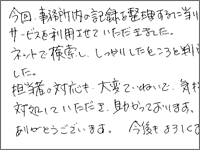 今回、事務所内の記録を整理するに当り
サービスを利用させていただきました。
ネットで検索し、しっかりしたところと判
した。
担当者の対応も、大変ていねいで、気持
対処していただき、助かっております。
ありがとうございます。 今後もよろしく